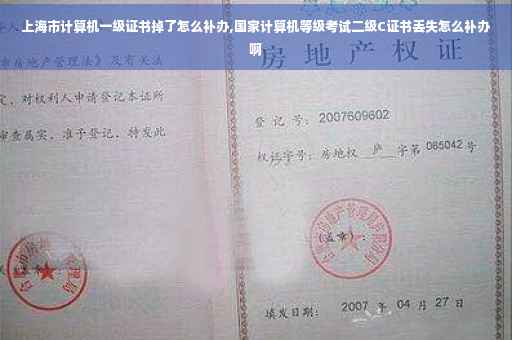 上海市计算机一级证书掉了怎么补办,国家计算机等级考试二级C证书丢失怎么补办
啊
房地产权
房地产管理法》及有关法
定，对权利人申请登记本证所
审查属实，准予登记，特发此
登记号：2007609602
权证字号：房地权 庐 字第 085042 号
(盖章)：
填发日期：2007 年 04 月 27 日